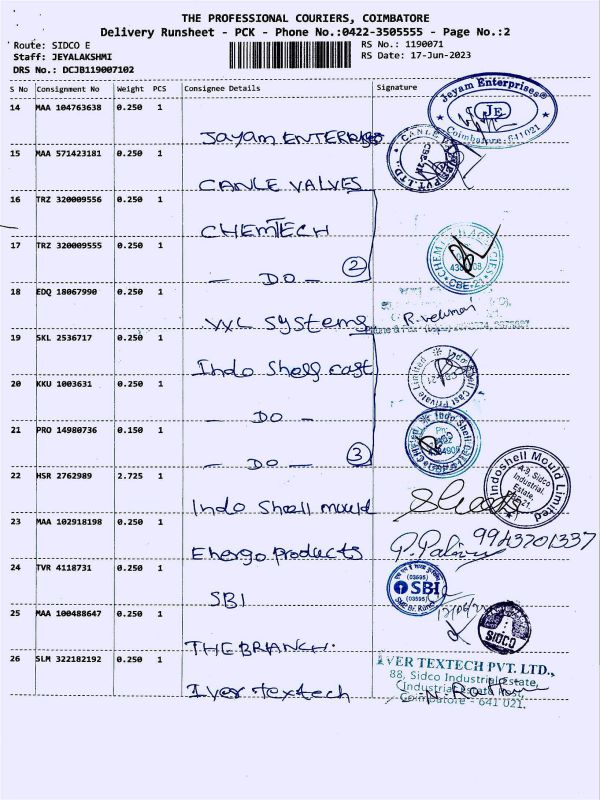 THE PROFESSIONAL COURIERS, COIMBATORE
Delivery Runsheet - PCK - Phone No.:0422-3505555 - Page No.:2
Route: SIDCO E RS No.: 1190071
Staff: JEYALAKSHMI RS Date: 17-Jun-2023
DRS No.: DCJB119007102
S No Consignment No Weight PCS Consignee Details Signature
14 MAA 104763638 0.250 1
Jayam ENTERPRISES
Jeyam Enterprises
JE
Coimbatore 641021
15 MAA 571423181 0.250 1
CANLE VALVES
16 TRZ 320009556 0.250 1
CHEMTECH
17 TRZ 320009555 0.250 1
- DO - 2
CBE-21
18 EDQ 18067990 0.250 1
VXL Systems
R. velumani
19 SKL 2536717 0.250 1
Indo Shell cast
Indo Shell Cast Private Limited
20 KKU 1003631 0.250 1
- DO -
21 PRO 14980736 0.150 1
- DO - 3
Indo Shell Cast
22 HSR 2762989 2.725 1
Indo Shell mould
Indoshell Mould Limited
A-9, Sidco
Industrial
Estate,
23 MAA 102918198 0.250 1
Energo products
9943701337
24 TVR 4118731 0.250 1
SBI
(03595)
SBI
(03595)
25 MAA 100488647 0.250 1
THE BRANCH.
SIDCO
26 SLM 322182192 0.250 1
Iver textech
IVER TEXTECH PVT. LTD.,
88, Sidco Industrial Estate,
Industrial Estate Post,
Coimbatore - 641 021.